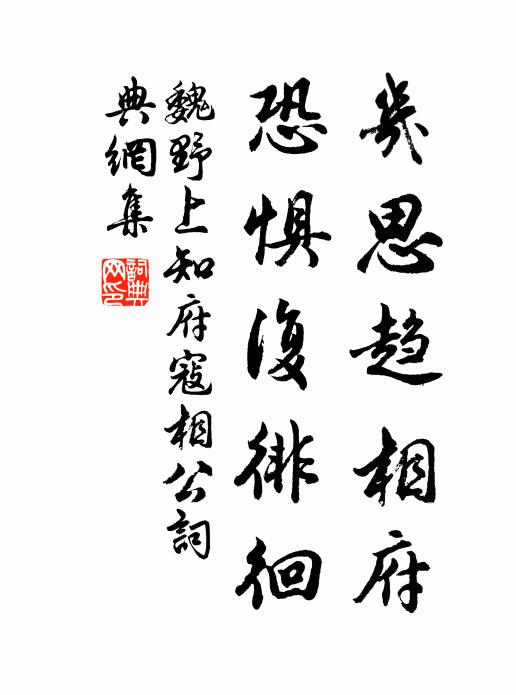 幾思趨相府
恐惧復徘徊
魏野上知府寇相公詞
典網集
詞典
网印